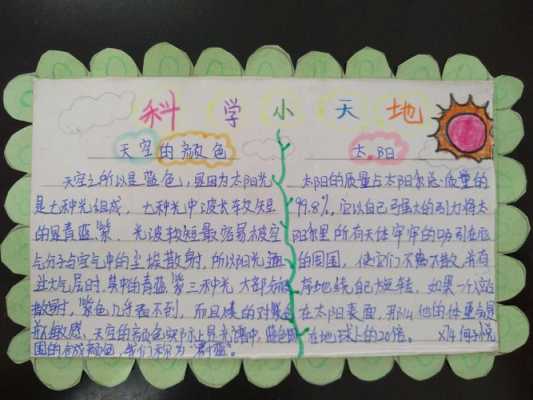 科学小天地
天空的颜色
天空之所以是蓝色,是因为太阳光
是七种光组成,七种光中波长较短
的是青蓝紫,光波较短最容易被空
气分子与空气中的尘埃散射,所以阳光通
过大气层时,其中的青蓝紫三种光大部分被
散射,紫色几乎看不到,而且
敏感,天空的颜色实际上是光谱中蓝色
国的合成颜色,我们称为"蔚蓝"。
太阳
太阳的质量占太阳系总质量的
99.8%,它以自己强大的引力将太
阳系里所有天体牢牢的吸引在它
的周围,使它们不离不散,并有
序地绕自己旋转,如果一个人站
在太阳表面,那么他的体重会是
在地球上的20倍。